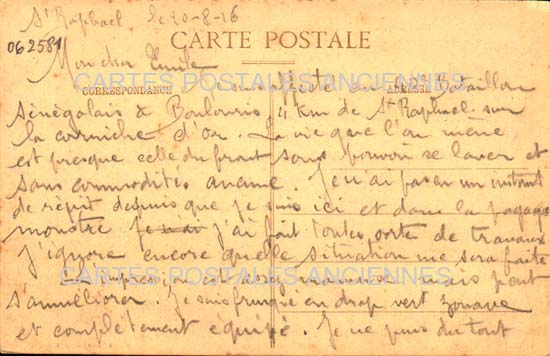 St Raphael le 20-8-16
062581
CARTE POSTALE
Mon cher Emile
CARTES POSTALES ANCIENNES
CORRESPONDANCE
ADRESSE
Je suis affecté au Bataillon
Sénégalais à Boulouris, 4 km de St Raphael sur
la corniche d'or. La vie que l'on mène
est presque celle du front sans pouvoir se laver et
sans commodités aucune. Je n'ai pas eu un instant
de répit depuis que je suis ici et dans la pagaye
monstre j'ai fait toutes sorte de travaux
J'ignore encore quelle situation me sera faite
CARTES POSTALES ANCIENNES
mais peut
s'améliorer. Je suis fringué en drap vert zouave
et complètement équipé. Je ne puis du tout